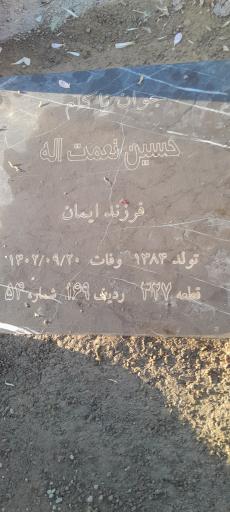 جوان ناکام
حسین نعمت اله
فرزند ایمان
تولد ۱۳۸۴ وفات ۱۴۰۲/۰۹/۲۰
قطعه ۳۲۷ ردیف ۱۶۹ شماره ۵۴